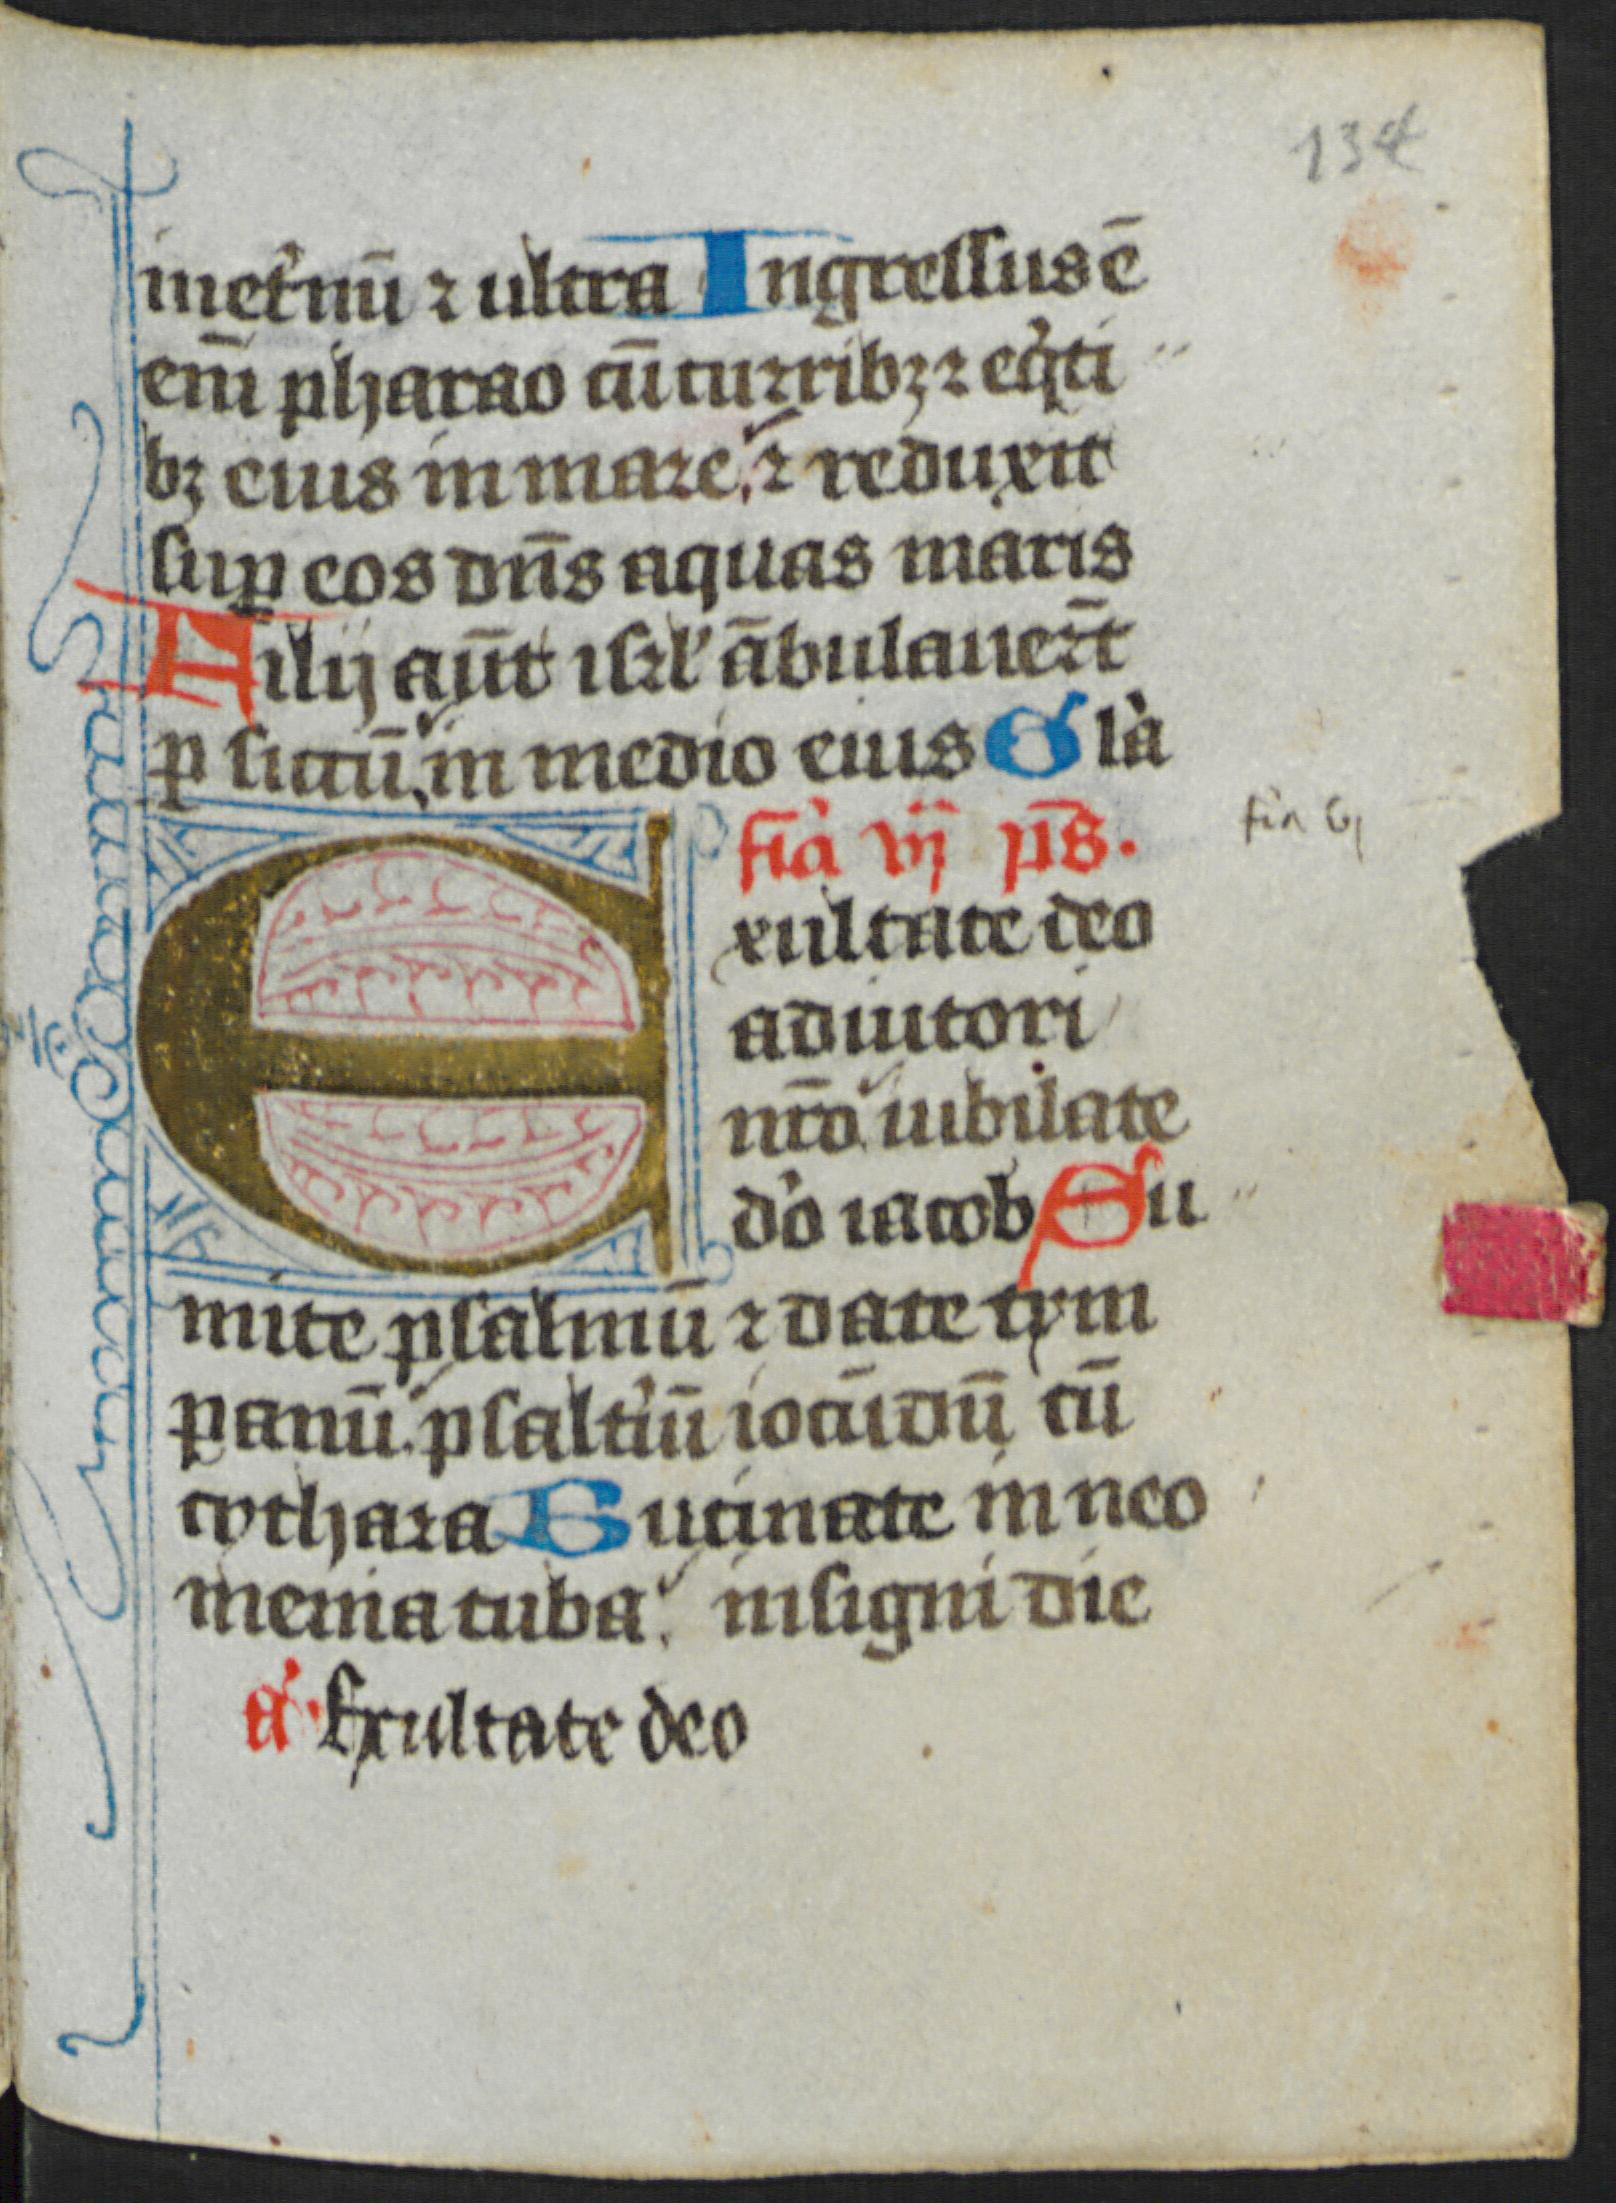 134
inet͛nū ⁊ ultra Ingressus ē
eni̅ pharao cū curribꝫ ⁊ eq̇ti
bꝫ eius in mare. ⁊ reduxit
suꝑ eos dn̅s aquas maris
Filij aūt isrl' ābulauer̅t
ꝑ siccū. in medio eius Gl'a
fr̅a vj ps̅.
fr̅a vj
Exultate deo
adiutori
nr̅o. iubilate
d'o iacob Su
mite psalmū ⁊ date tym
panū. psalt'iū iocūdū cū
cythara Bucinate in neo
menia tuba. insigni die
a' Exultate deo